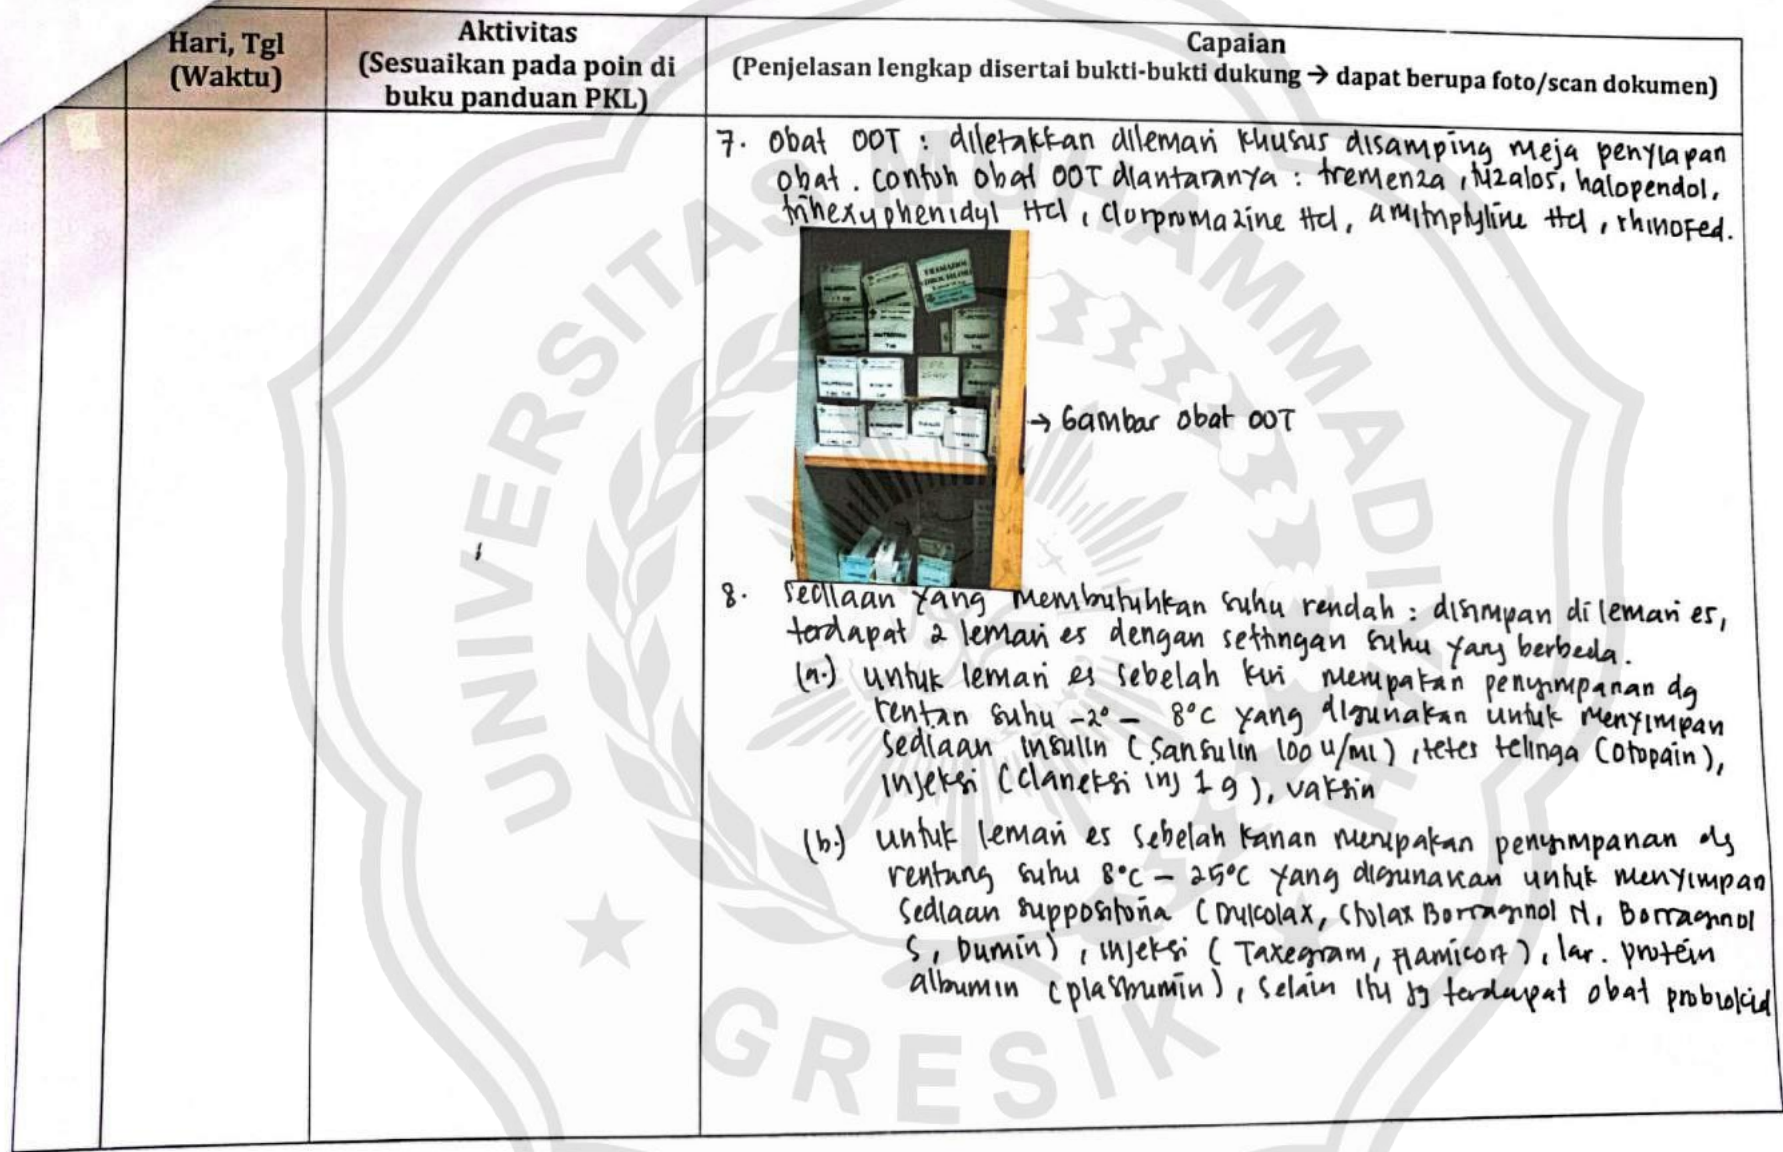 Hari, Tgl
(Waktu)
Aktivitas
(Sesuaikan pada poin di
buku panduan PKL)
Capaian
(Penjelasan lengkap disertai bukti-bukti dukung → dapat berupa foto/scan dokumen)
7. Obat OOT : diletakkan dilemari khusus disamping meja penyiapan
obat. Contoh obat OOT diantaranya : tremenza, halopendol,
trihexyphenidyl Hcl, Clorpromazine Hcl, amitriptyline Hcl, rhinofed.
TRAMADOL
→ Gambar obat OOT
8. Sediaan yang membutuhkan suhu rendah : disimpan di lemari es,
terdapat 2 lemari es dengan settingan suhu yang berbeda.
(a.) untuk lemari es sebelah kiri merupakan penyimpanan dg
rentan suhu -2° - 8°C yang digunakan untuk menyimpan
sediaan insulin (Sansulin 100 u/ml), tetes telinga (otopain),
injeksi (claneksi inj 1 g), vaksin
(b.) untuk lemari es sebelah kanan merupakan penyimpanan dg
rentang suhu 8°C - 25°C yang digunakan untuk menyimpan
Sediaan suppositoria (Dulcolax, Stolax Borraginol N, Borraginol
S, Dumin), injeksi (Taxegram, Flamicort), lar. protein
albumin (plasbumin), selain itu jg terdapat obat probiokid
UNIVERSITAS MUHAMMADIYAH
GRESIK